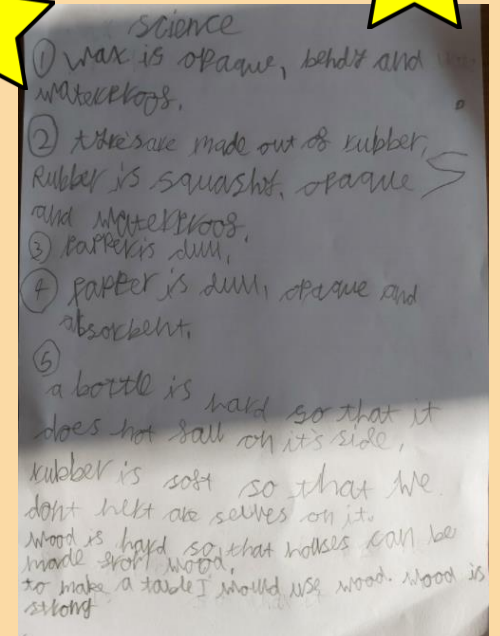 science
① wax is opaque, bendy and
waterproof.
② tyres are made out of rubber,
Rubber is squashy, opaque
and waterproof.
③ papper is dull,
④ papper is dull, opaque and
absorbent.
⑤
a bottle is hard so that it
does not fall on it's side,
rubber is soft so that we
dont hert are selves on it.
wood is hard so that houses can be
made from wood.
to make a table I would use wood. wood is
strong